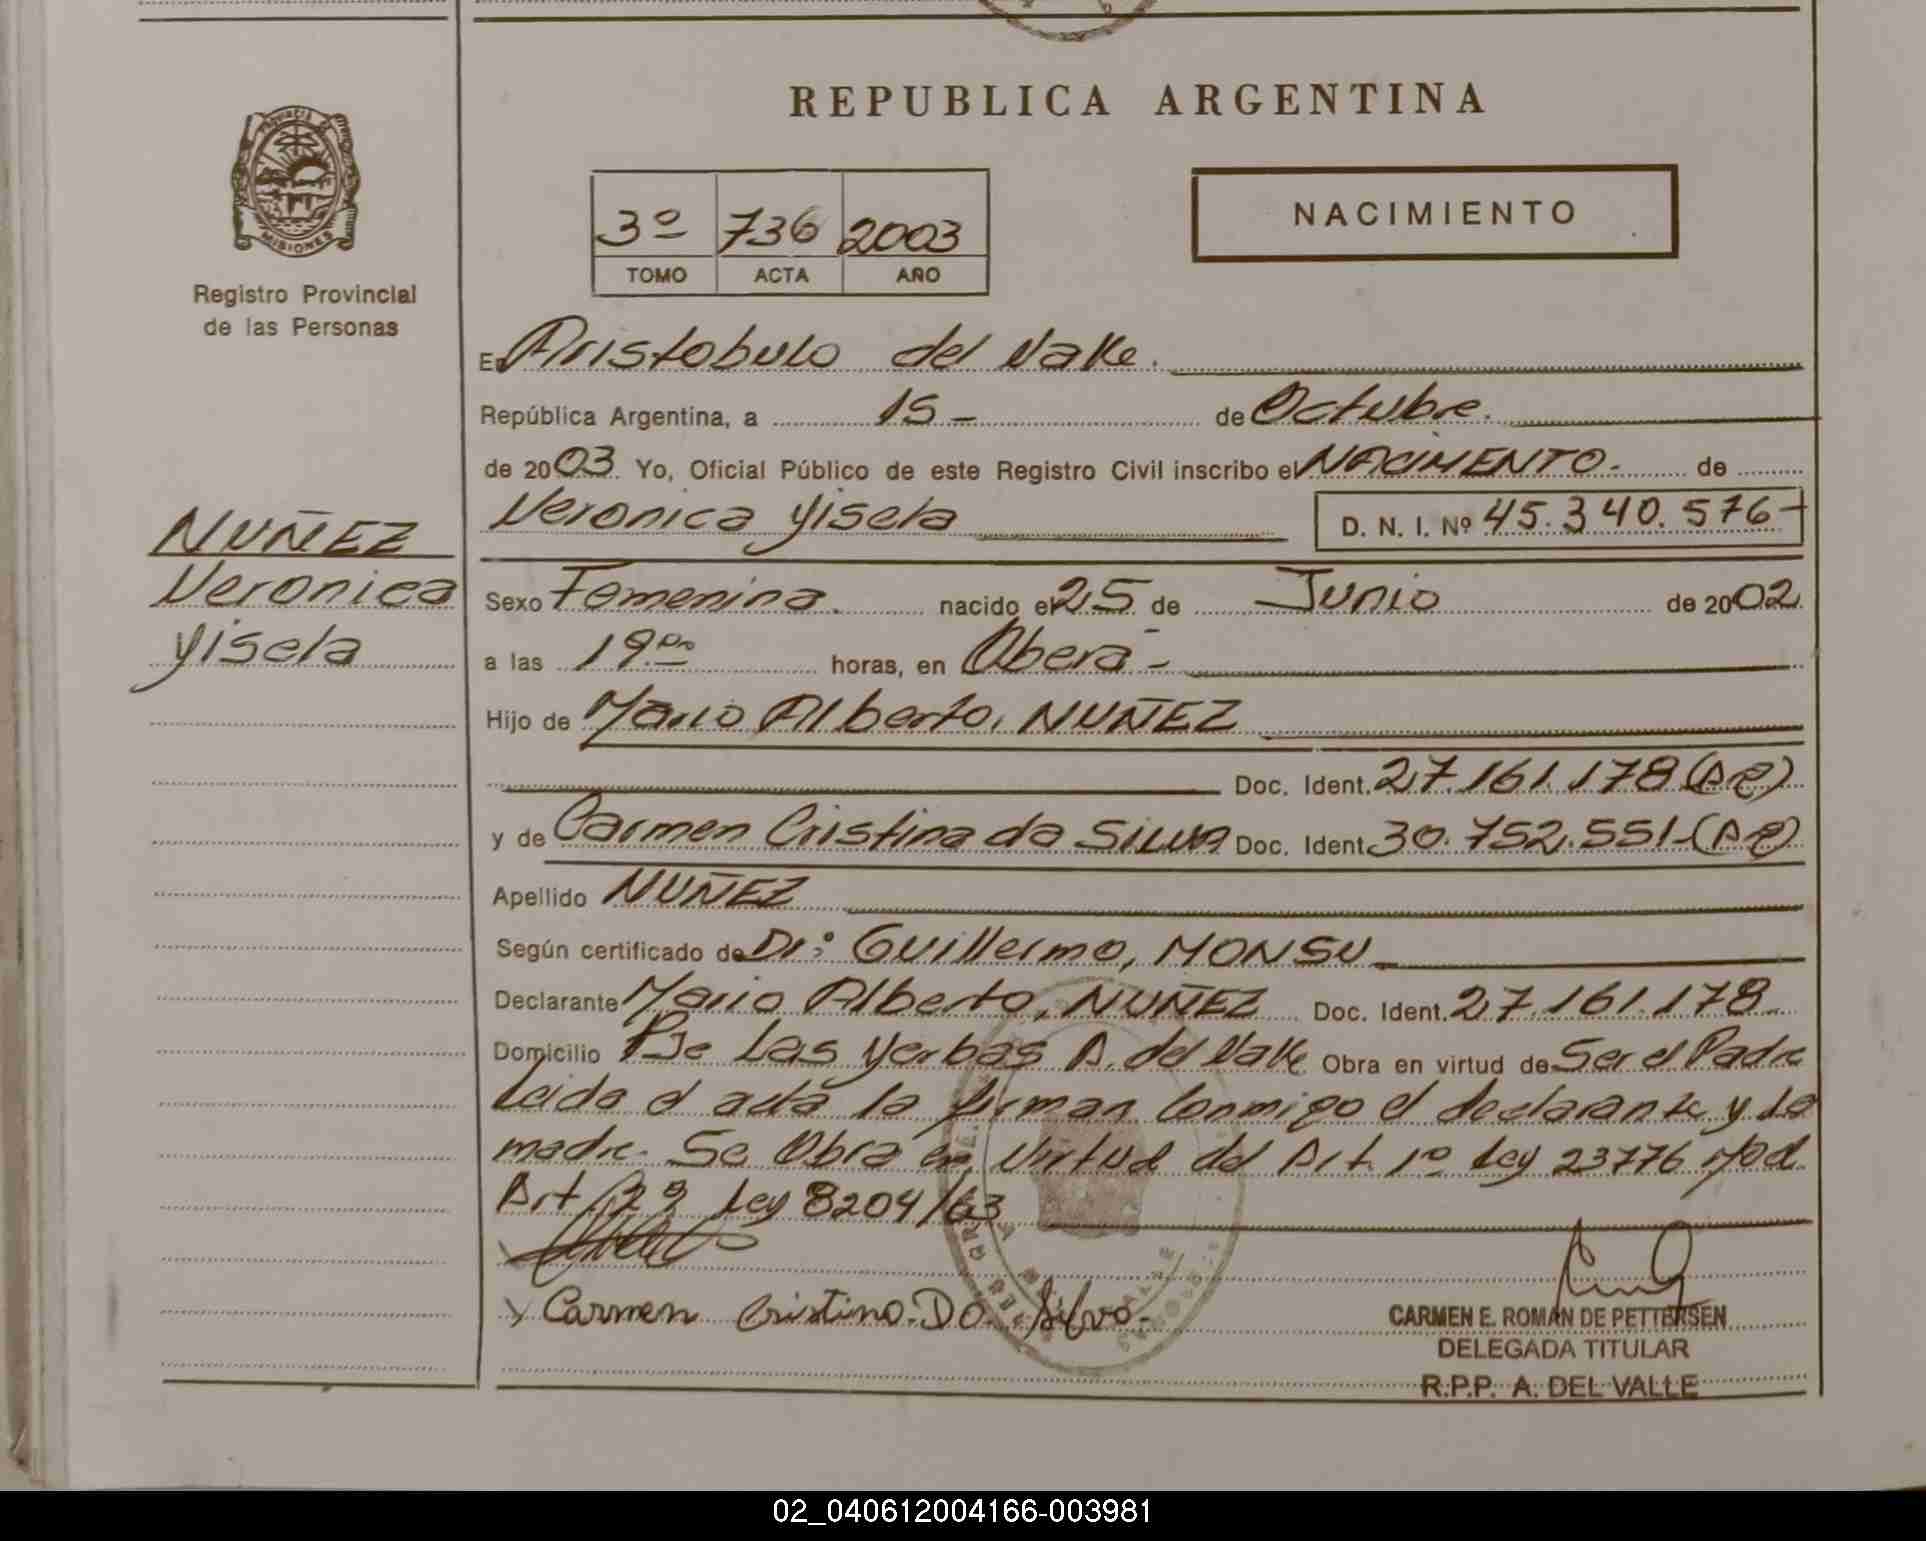 REPUBLICA ARGENTINA
PROVINCIA DE
MISIONES
Registro Provincial
de las Personas
3º 736 2003
TOMO ACTA AÑO
NACIMIENTO
En Aristobulo del Valle.
República Argentina, a 15 - de Octubre.
de 2003. Yo, Oficial Público de este Registro Civil inscribo el NACIMIENTO. de
Veronica Yisela D. N. I. Nº 45.340.576-
NUÑEZ
Veronica
Yisela
Sexo Femenina. nacido el 25 de Junio de 2002.
a las 19:00 horas, en Oberá -
Hijo de Mario Alberto, NUÑEZ
Doc. Ident. 27.161.178 (AR)
y de Carmen Cristina da Silva Doc. Ident. 30.752.551-(AR)
Apellido NUÑEZ
Según certificado de Dr: Guillermo, MONSU
Declarante Mario Alberto, NUÑEZ Doc. Ident. 27.161.178
Domicilio Pje Las Yerbas A. del Valle Obra en virtud de Ser el Padre
Leida el acta la firman Conmigo el declarante y la
madre. Se Obra en Virtud del Art. 1º Ley 23776 Mod.
Art. 29 Ley 8204/63
Carmen Cristina. Da. Silva.-
CARMEN E. ROMAN DE PETTERSEN
DELEGADA TITULAR
R.P.P. A. DEL VALLE
02_040612004166-003981